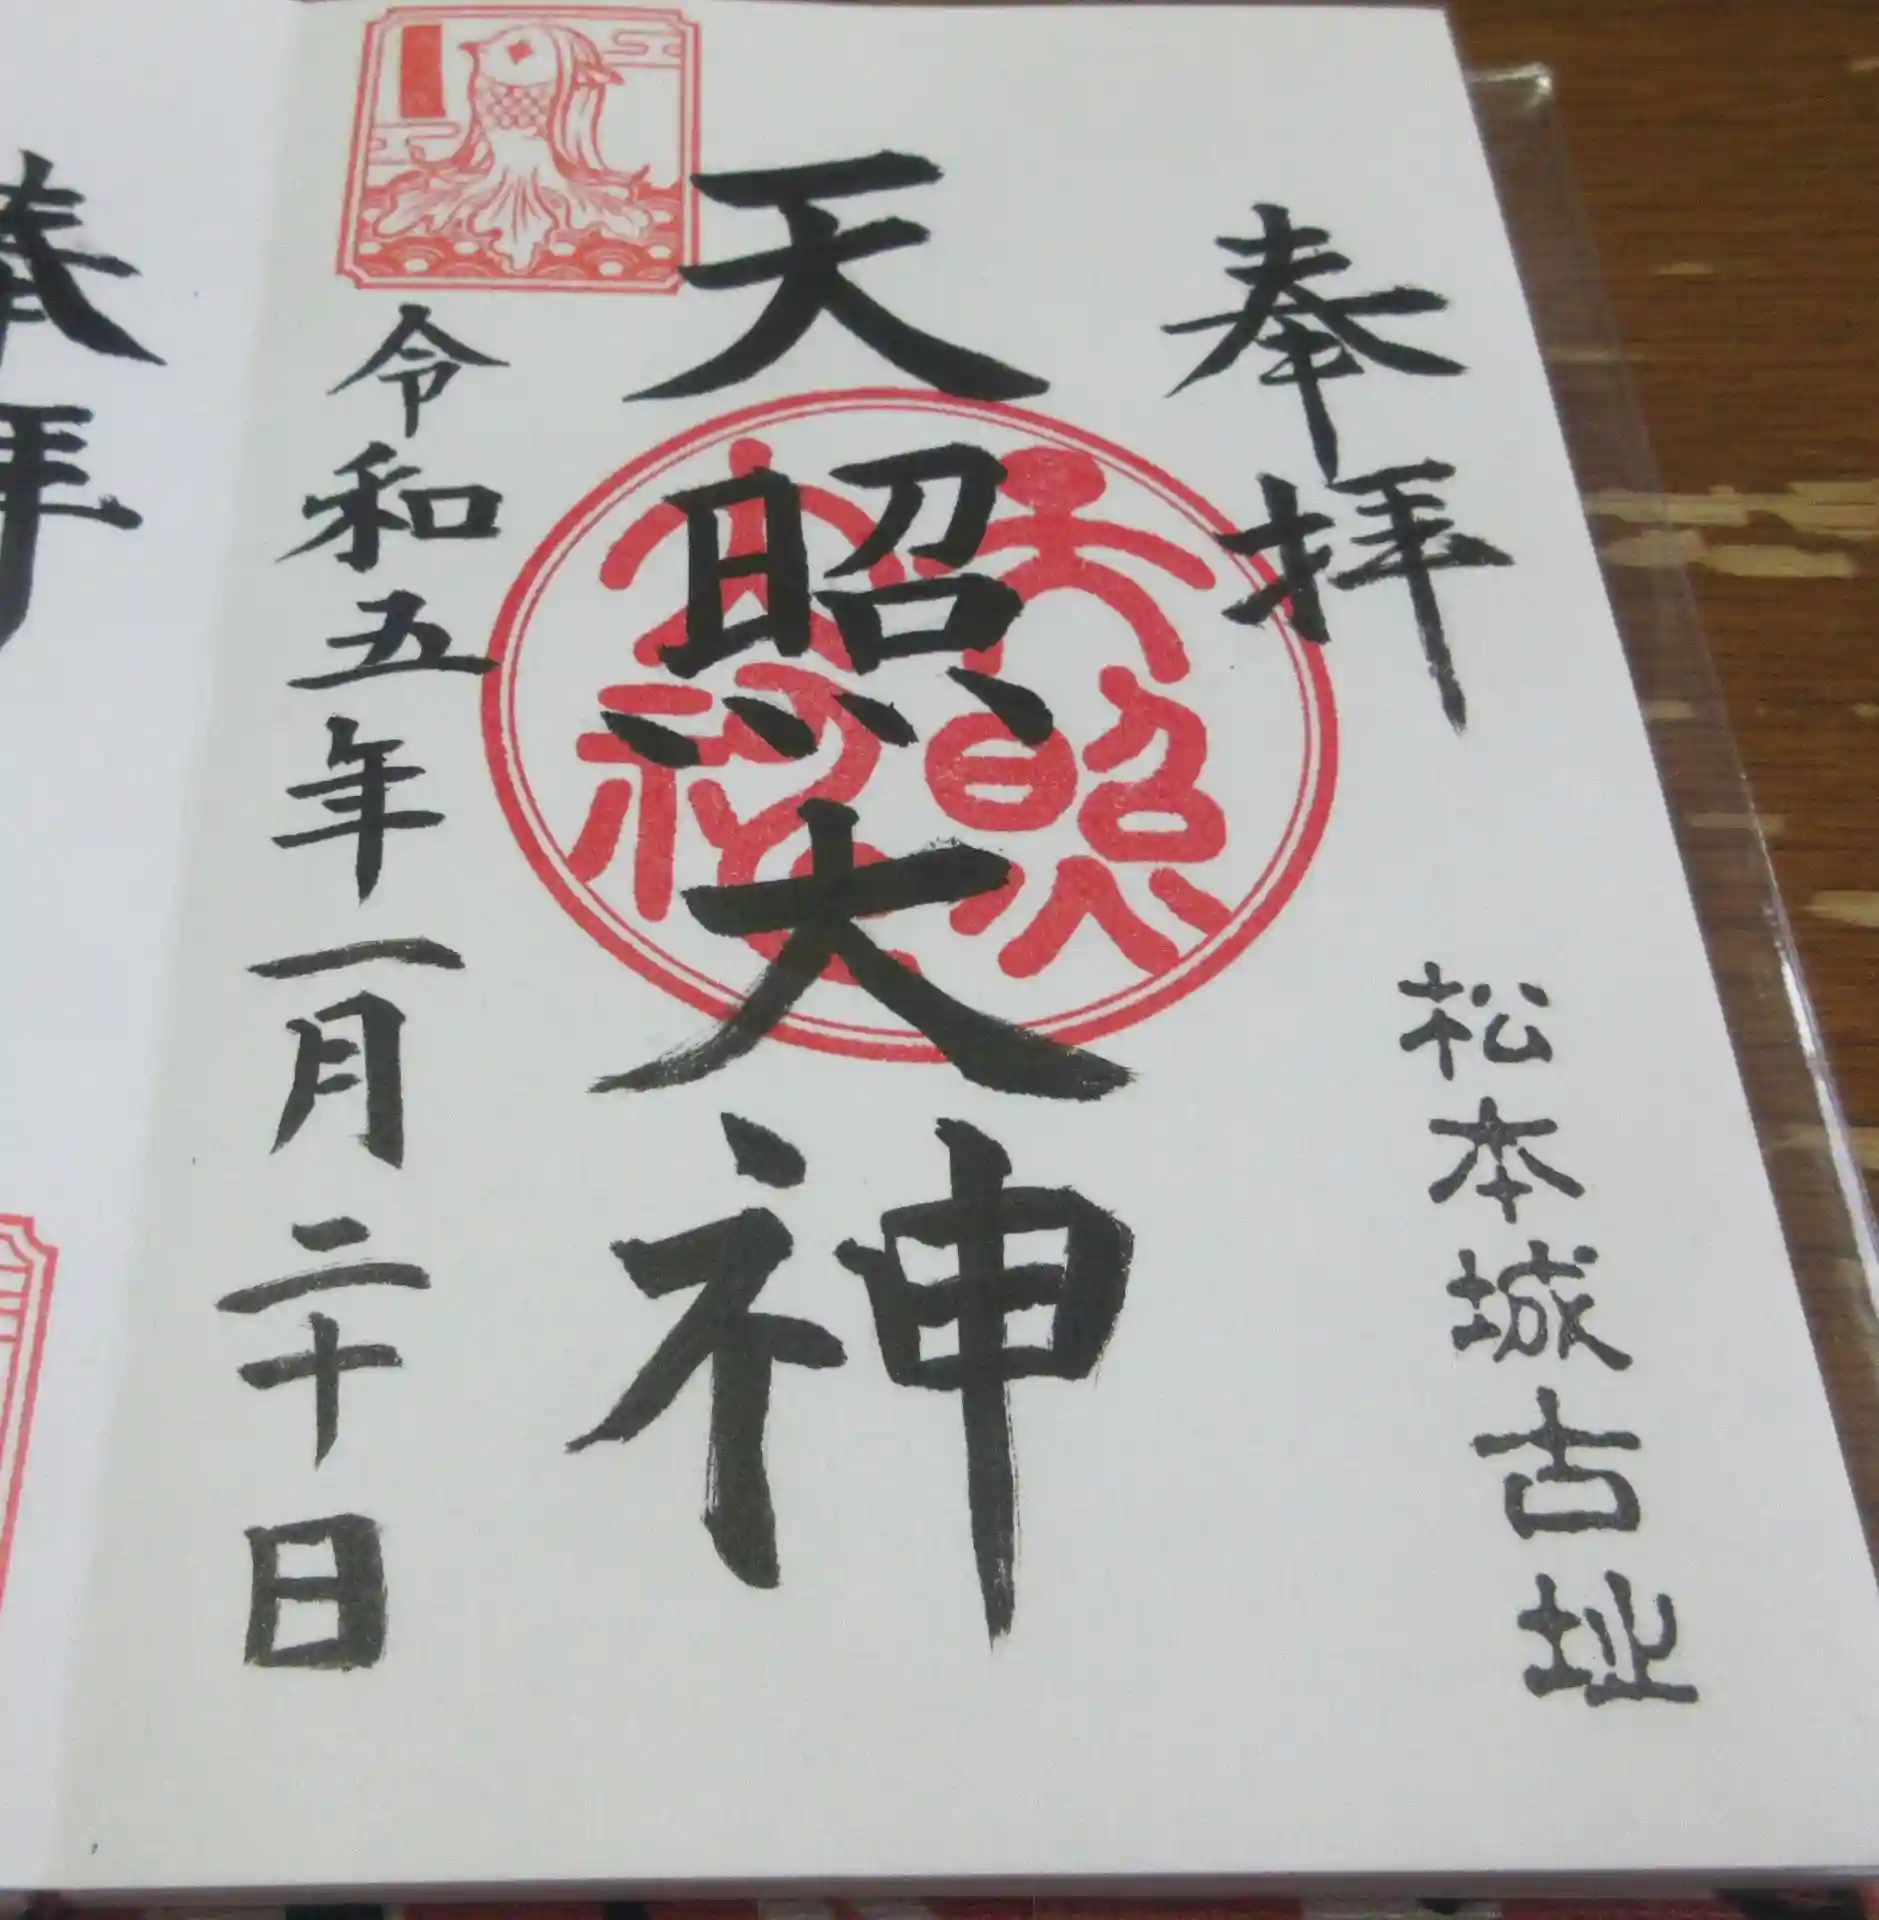 奉拝
松本城古址
天照大神
天照
大神
令和五年一月二十日
奉拝